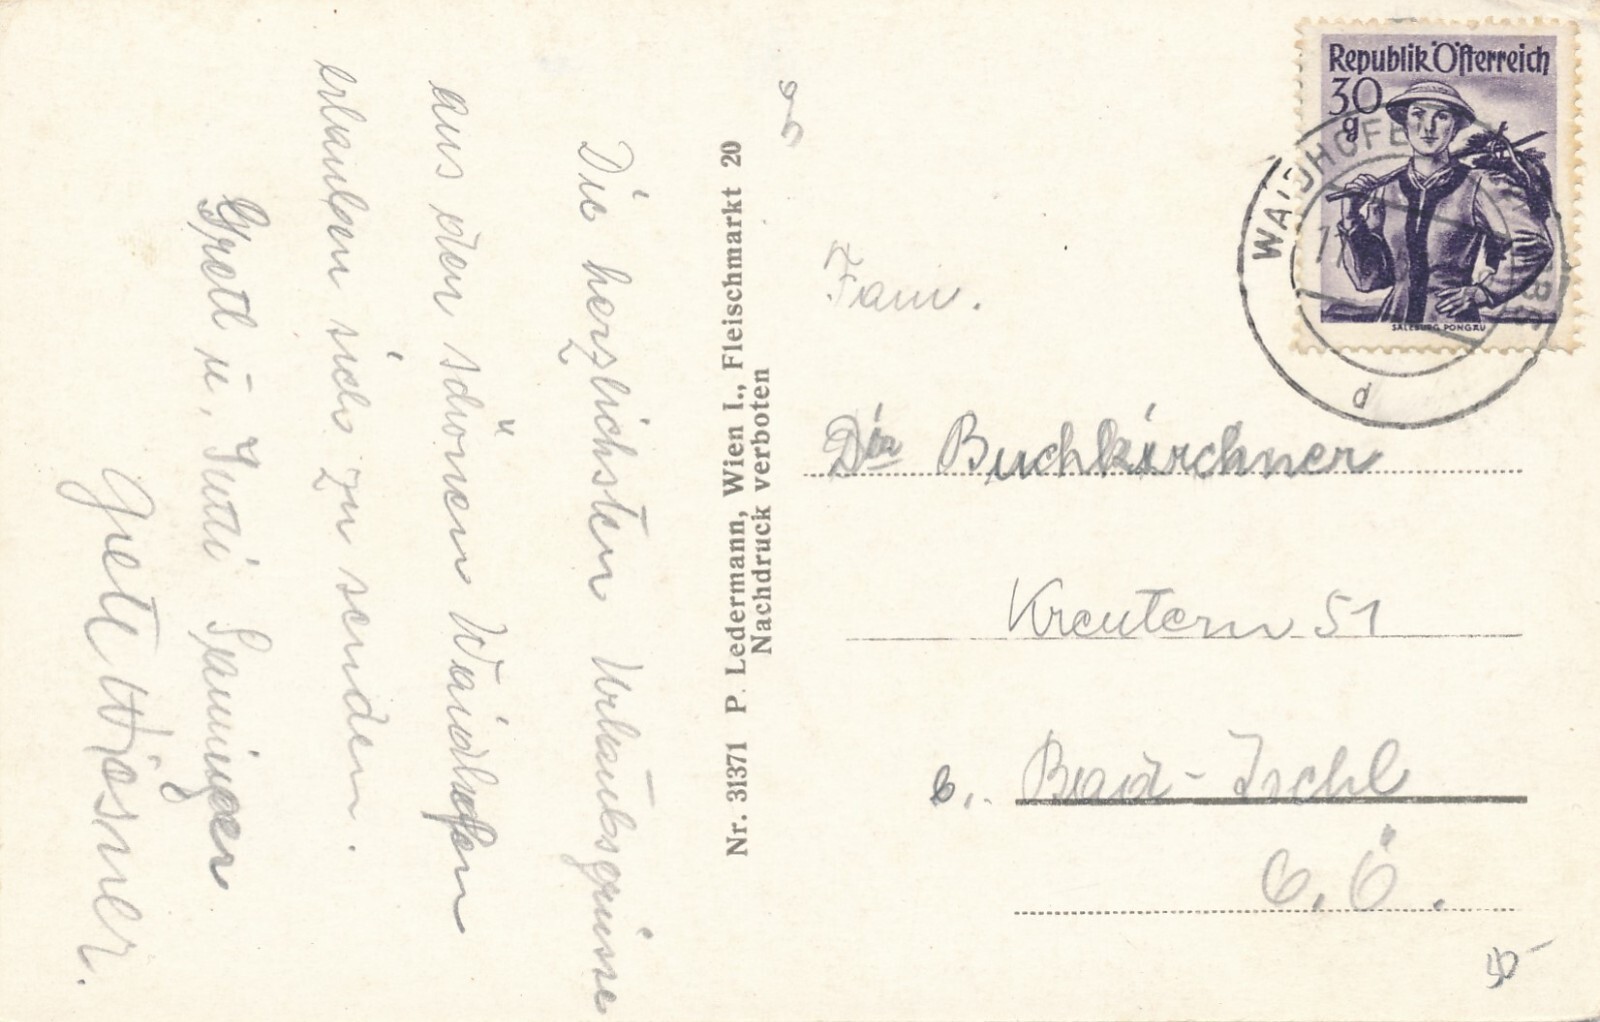 Die herzlichsten Urlaubsgrüsse
aus dem schönen Waidhofen
erlauben sich zu senden.
Gretl u. Tutti
Grete
Nr. 31371 P. Ledermann, Wien I., Fleischmarkt 20
Nachdruck verboten
Republik Österreich
30
g
SALZBURG PONGAU
WAIDHOFEN
d
Fam.
Dir Buchkirchner
Kreutern 51
b. Bad-Ischl
O.Ö.